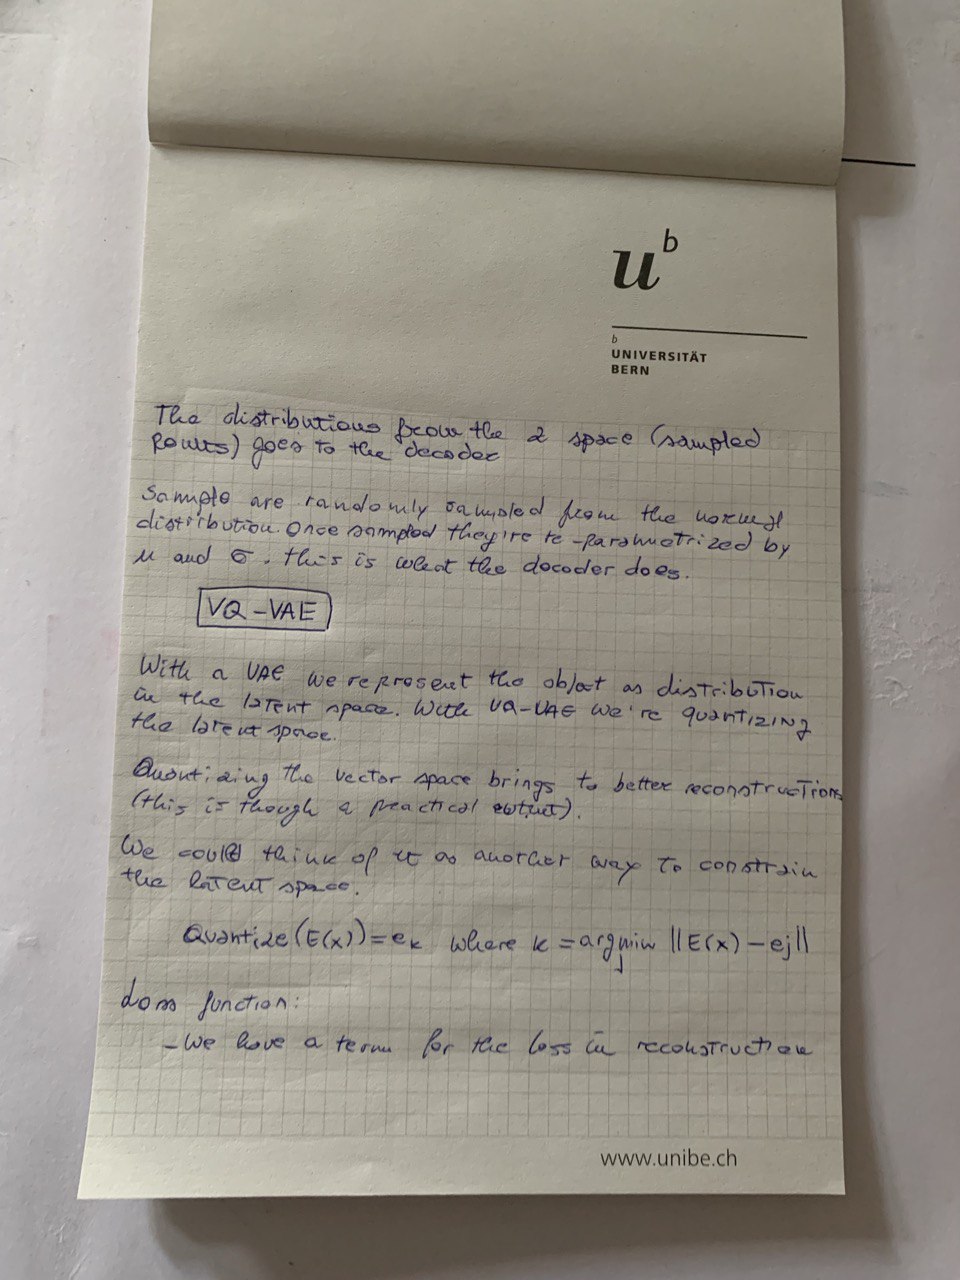 u b
b
UNIVERSITÄT
BERN
The distributions from the z space (sampled
points) goes to the decoder
Sample are randomly sampled from the normal
distribution. Once sampled they're re-parametrized by
μ and σ. this is what the decoder does.
VQ-VAE
With a VAE we represent the object as distribution
in the latent space. With VQ-VAE we're quantizing
the latent space.
Quantizing the vector space brings to better reconstructions
(this is though a practical).
We could think of it as another way to constrain
the latent space.
Quantize(E(x)) = ek where k = argmin ||E(x) - ej||
j
Loss function:
- We have a term for the loss in reconstruction
www.unibe.ch